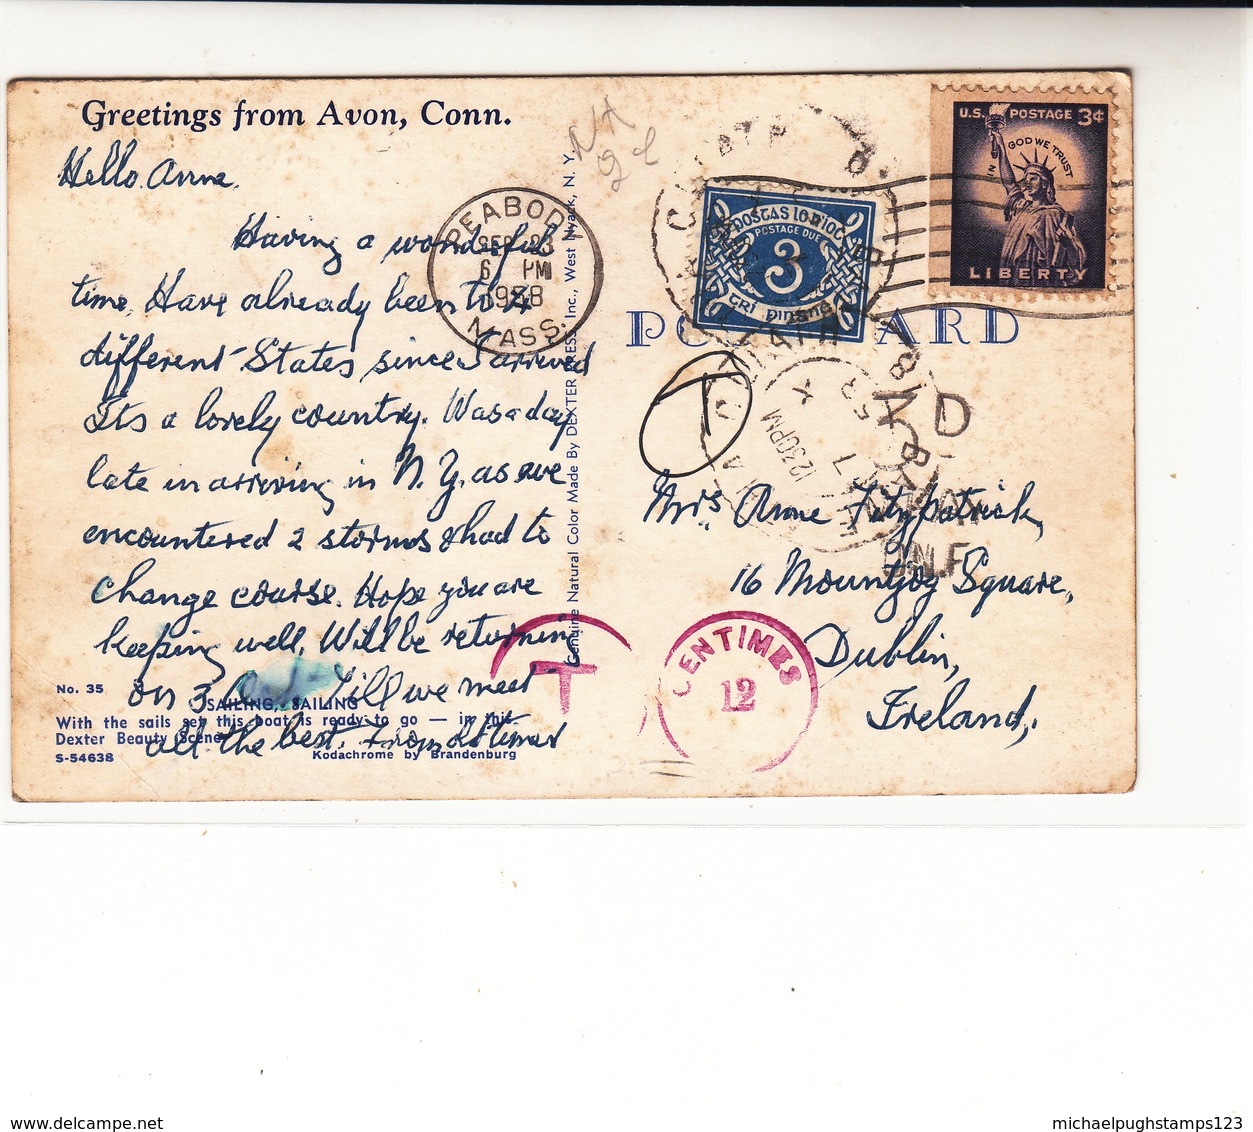 Greetings from Avon, Conn.
Hello Anne.
Having a wonderful
time. Have already been to 4
different States since I arrived
Its a lovely country. Was a day
late in arriving in N.Y. as we
encountered 2 storms & had to
change course. Hope you are
keeping well. Will be returning
on 3 till we meet
all the best. From
No. 35
SAILING, SAILING
With the sails set this boat is ready to go — in this
Dexter Beauty Scene
S-54638
Kodachrome by Brandenburg
Genuine Natural Color Made By DEXTER PRESS, Inc., West Nyack, N. Y.
PEABODY
SEP 23
6 PM
1958
MASS.
POSTCARD
POSTAS IONÍOC
POSTAGE DUE
3
TRÍ PINGNE
U.S. POSTAGE 3¢
IN GOD WE TRUST
LIBERTY
T
12 30 PM
7
X
58
Mrs. Anne Fitzpatrick,
16 Mountjoy Square,
Dublin,
Ireland,
T
CENTIMES
12
delcampe.net
michaelpughstamps123